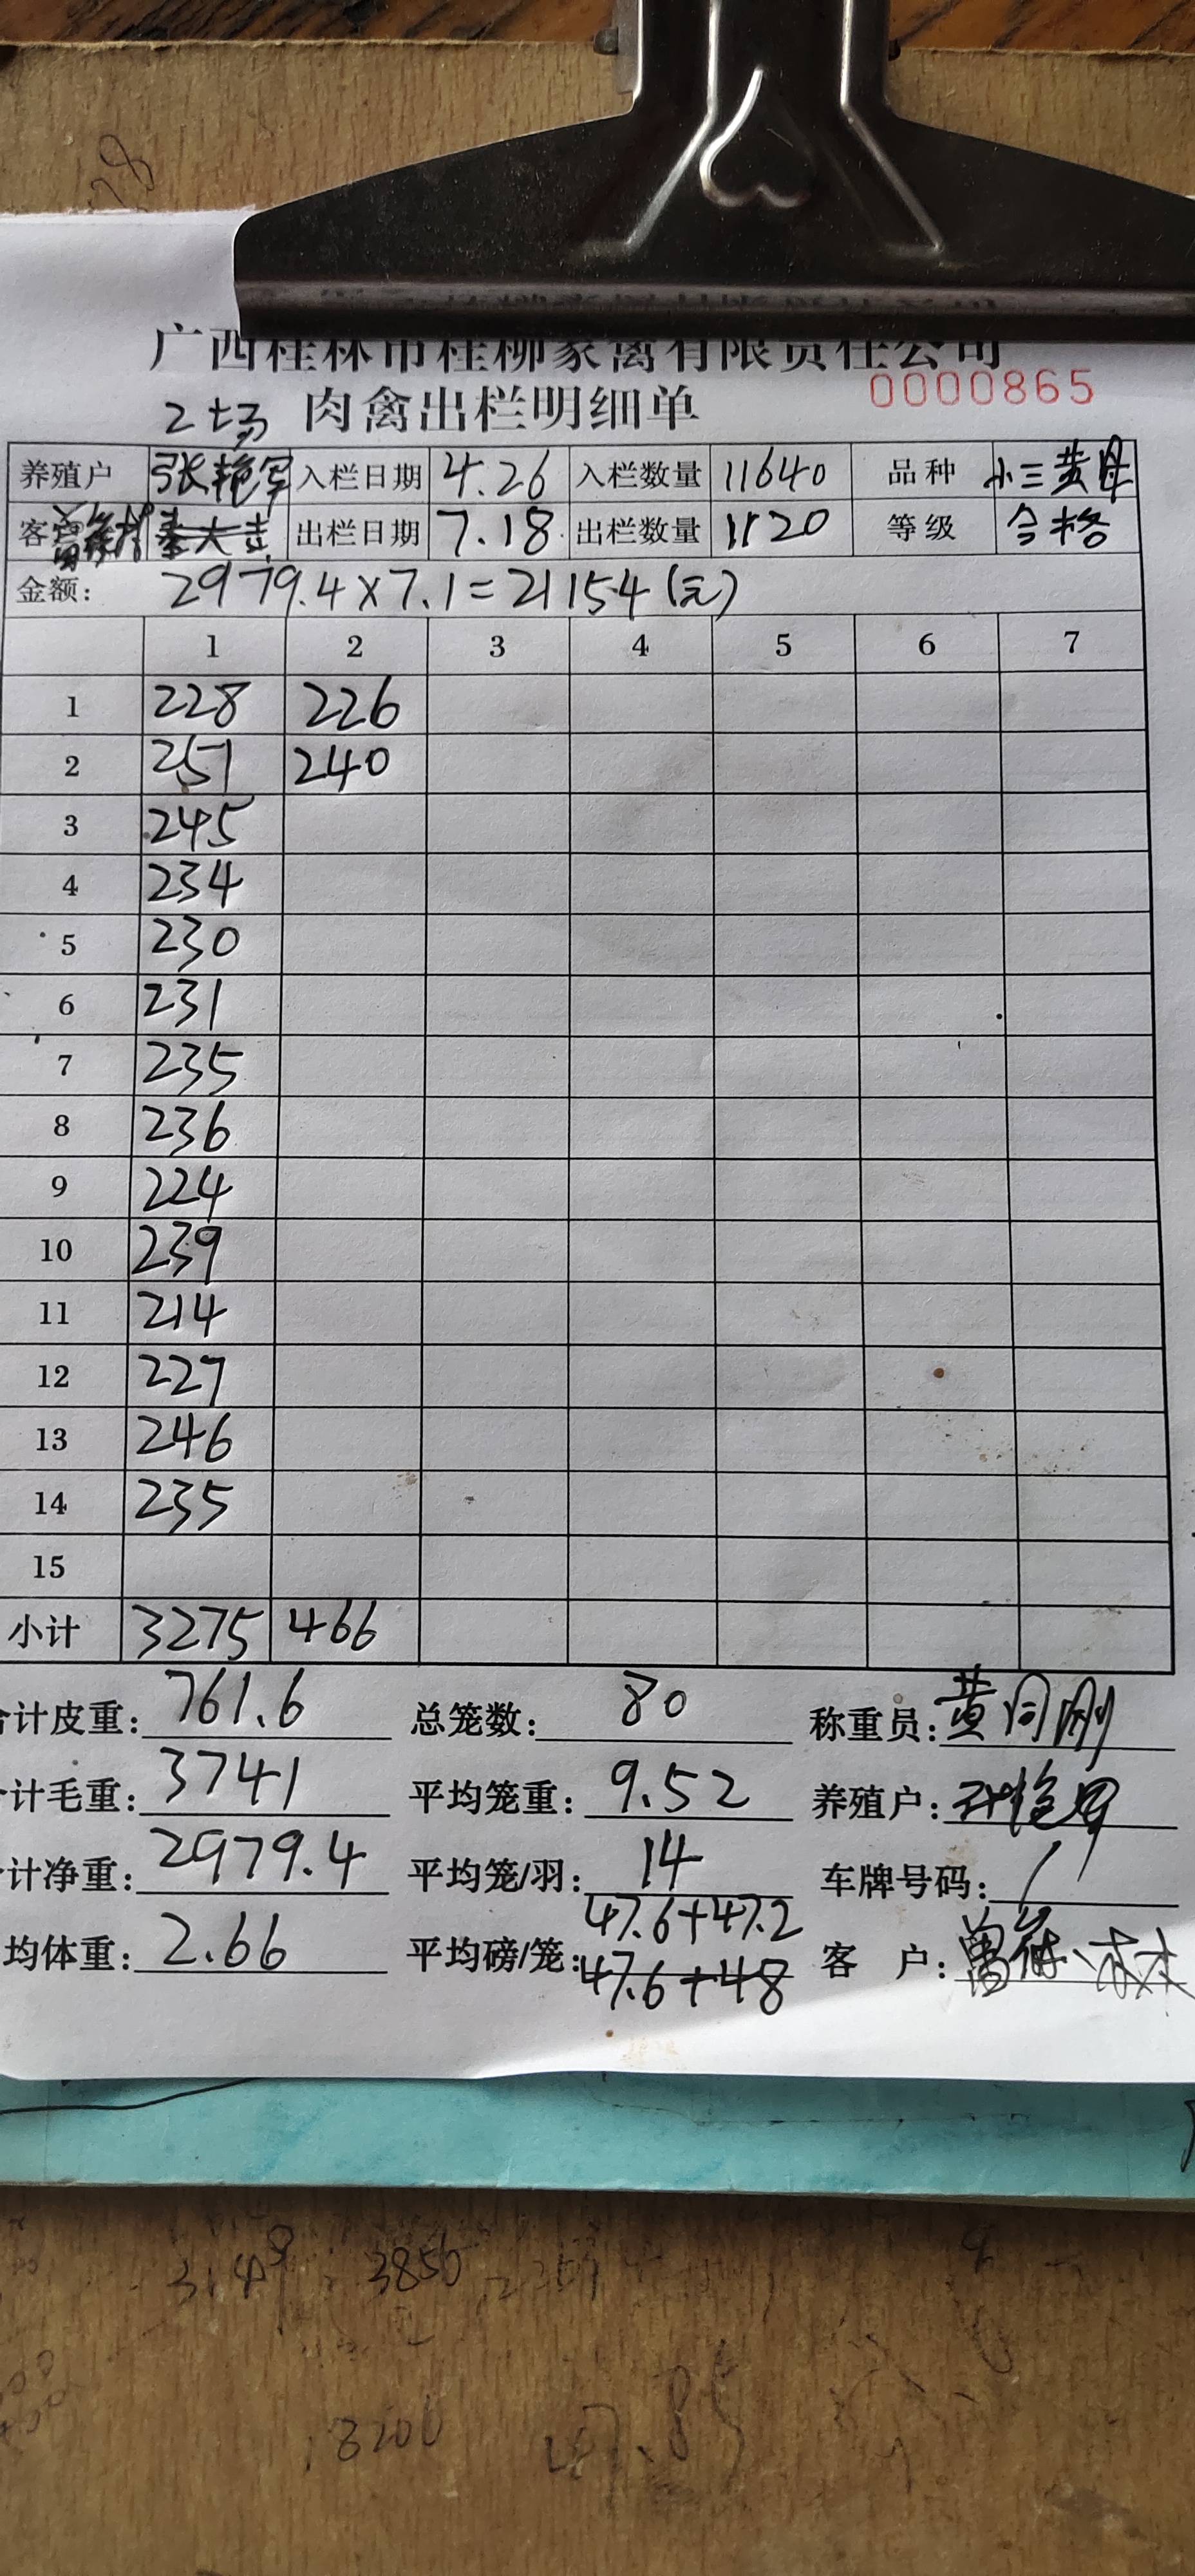 广西桂林市桂柳家禽有限责任公司
2士场 肉禽出栏明细单 0000865
养殖户 张艳军 入栏日期 4.26 入栏数量 11640 品种 小三黄母
客户 秦大圭 出栏日期 7.18 出栏数量 1120 等级 合格
金额: 2979.4×7.1=21154(元)
1 2 3 4 5 6 7
1 228 226
2 251 240
3 245
4 234
5 230
6 231
7 235
8 236
9 224
10 239
11 214
12 227
13 246
14 235
15
小计 3275 466
计皮重: 761.6 总笼数: 80 称重员: 黄同刚
计毛重: 3741 平均笼重: 9.52 养殖户:
计净重: 2979.4 平均笼/羽: 14 车牌号码: /
均体重: 2.66 平均磅/笼: 47.6+47.2 客 户:
47.6+48
3850
3200